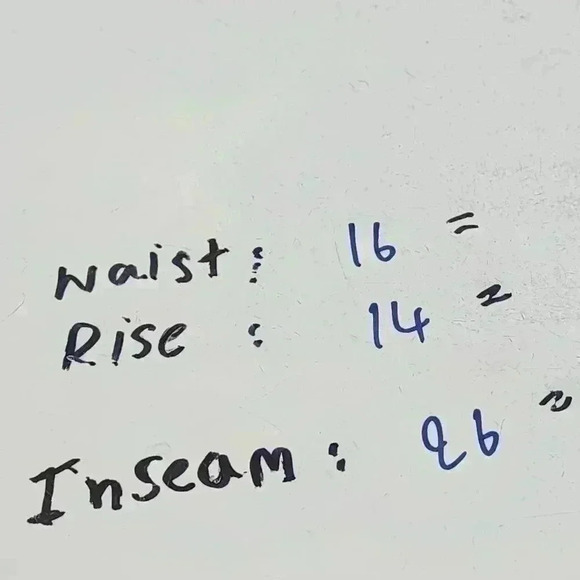 Waist: 16 "
Rise : 14 "
Inseam : 26 "